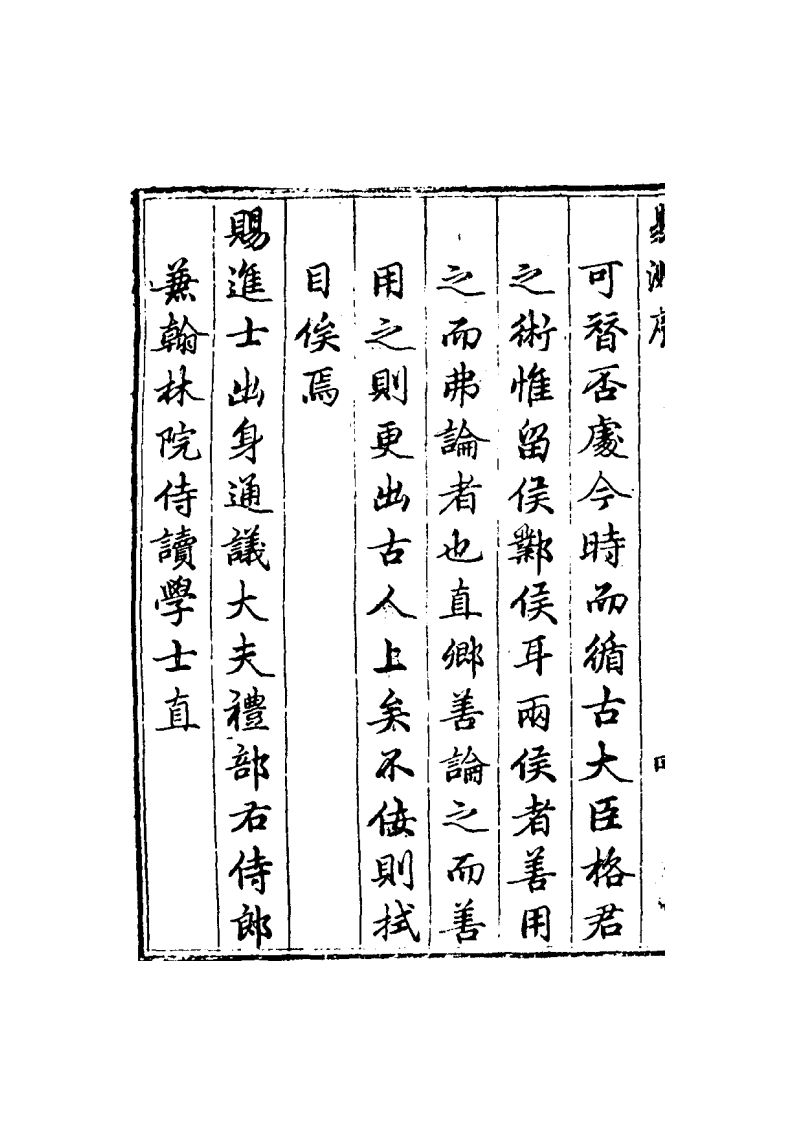 測序 四
可替否處今時而循古大臣格君
之術惟留侯鄴侯耳兩侯者善用
之而弗論者也直卿善論之而善
用之則更出古人上矣不佞則拭
目俟焉
賜進士出身通議大夫禮部右侍郎
兼翰林院侍讀學士直